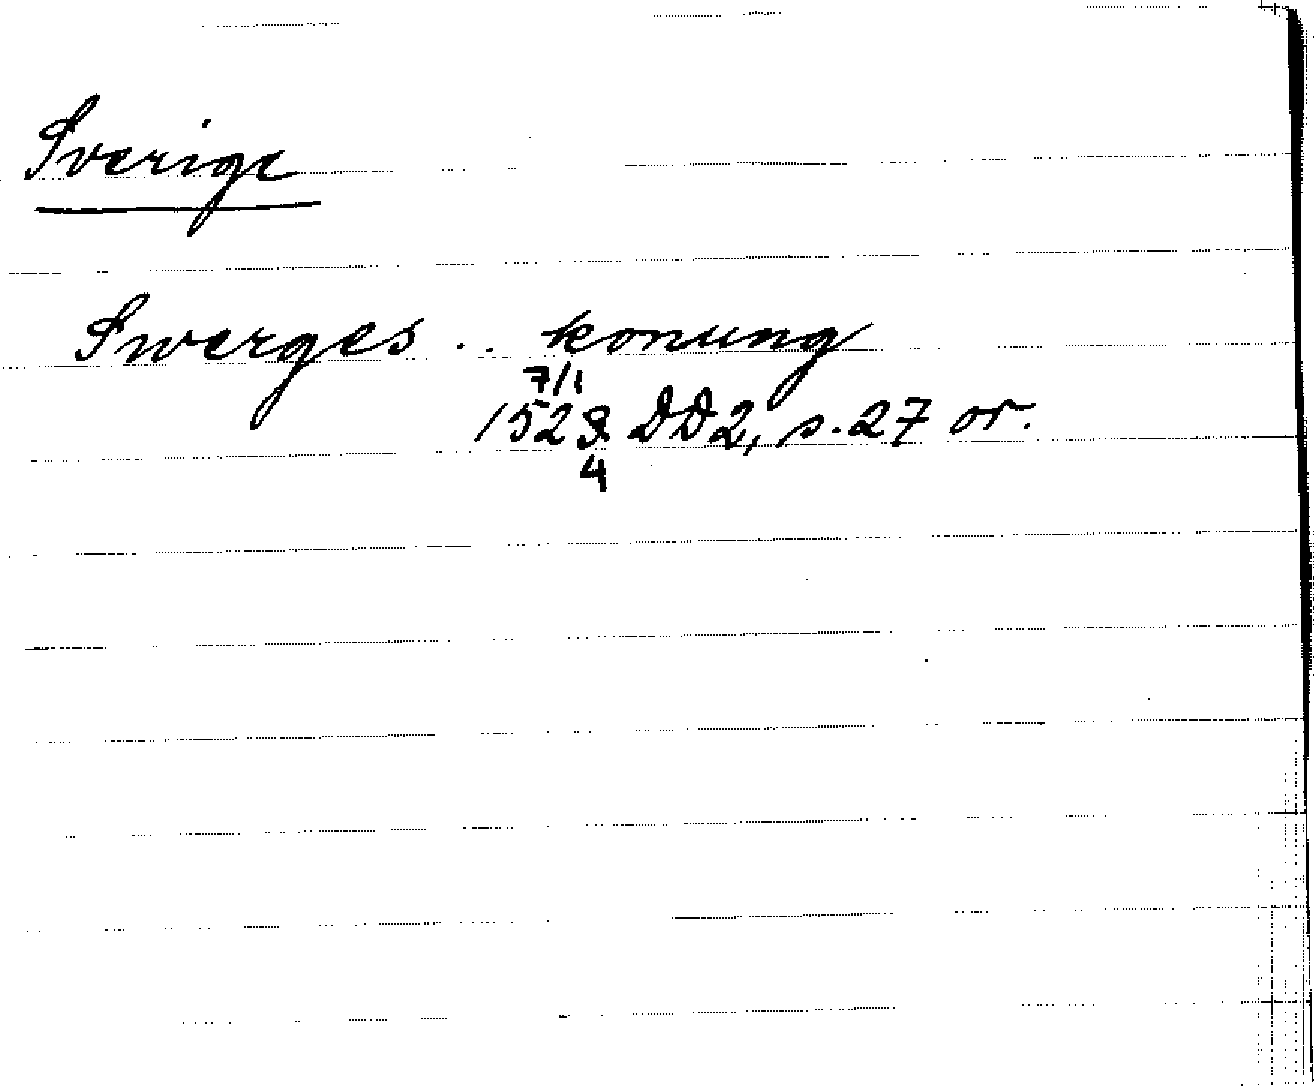 Sverige
Swerges .. konung
7/1
1528 DD2, s. 27 or.
4